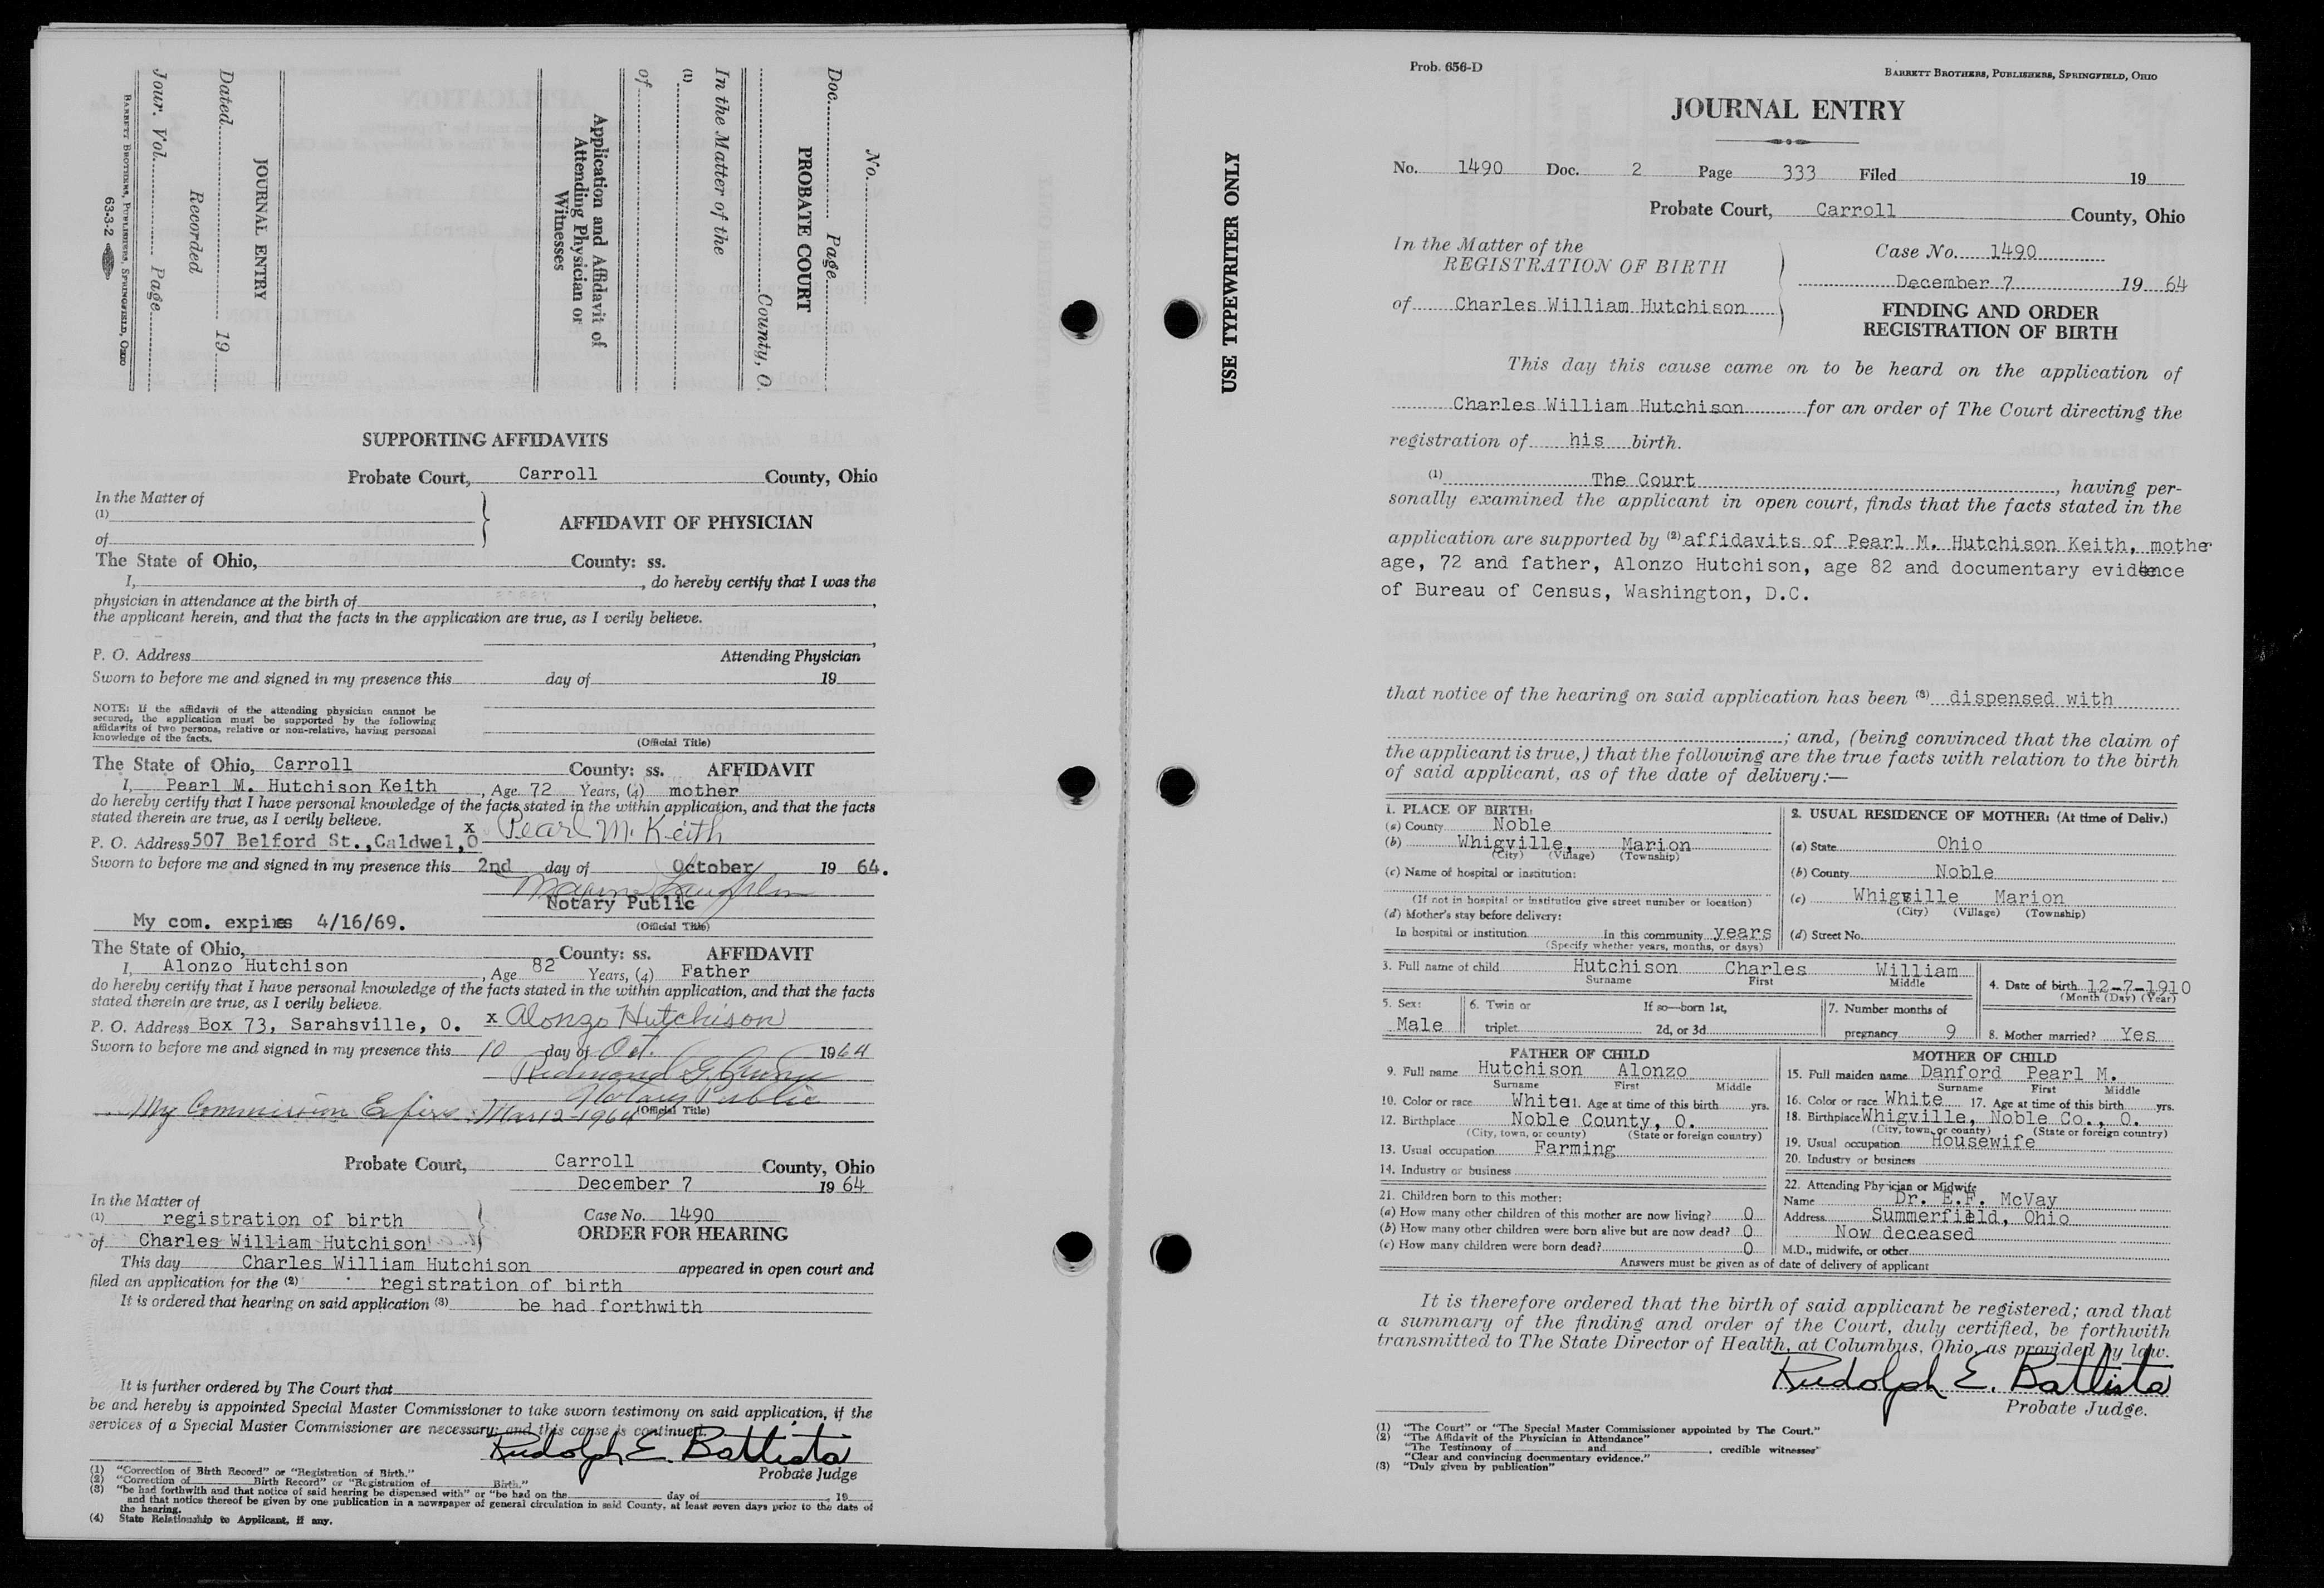 No.
Doc. Page
PROBATE COURT
County, O.
In the Matter of the
(1)
of
Application and Affidavit of
Attending Physician or
Witnesses
JOURNAL ENTRY
Dated 19
Recorded
Jour. Vol. Page
BARRETT BROTHERS, PUBLISHERS, SPRINGFIELD, OHIO
63-3-2
SUPPORTING AFFIDAVITS
Probate Court, Carroll County, Ohio
In the Matter of
(1)
of
AFFIDAVIT OF PHYSICIAN
The State of Ohio, County: ss.
I, , do hereby certify that I was the
physician in attendance at the birth of ,
the applicant herein, and that the facts in the application are true, as I verily believe.
P. O. Address Attending Physician
Sworn to before me and signed in my presence this day of 19
NOTE: If the affidavit of the attending physician cannot be
secured, the application must be supported by the following
affidavits of two persons, relative or non-relative, having personal
knowledge of the facts.
(Official Title)
The State of Ohio, Carroll County: ss. AFFIDAVIT
I, Pearl M. Hutchison Keith , Age 72 Years, (4) mother
do hereby certify that I have personal knowledge of the facts stated in the within application, and that the facts
stated therein are true, as I verily believe.
x Pearl M. Keith
P. O. Address 507 Belford St.,Caldwel,O
Sworn to before me and signed in my presence this 2nd day of October 19 64.
Notary Public
My com. expires 4/16/69.
(Official Title)
The State of Ohio, County: ss. AFFIDAVIT
I, Alonzo Hutchison , Age 82 Years, (4) Father
do hereby certify that I have personal knowledge of the facts stated in the within application, and that the facts
stated therein are true, as I verily believe.
P. O. Address Box 73, Sarahsville, O. x Alonzo Hutchison
Sworn to before me and signed in my presence this 10 day of Oct. 1964
Notary Public
My Commission Expires Mar 12-1964 (Official Title)
Probate Court, Carroll County, Ohio
December 7 19 64
In the Matter of
(1) registration of birth
of Charles William Hutchison
Case No. 1490
ORDER FOR HEARING
This day Charles William Hutchison appeared in open court and
filed an application for the (2) registration of birth
It is ordered that hearing on said application (3) be had forthwith
It is further ordered by The Court that
be and hereby is appointed Special Master Commissioner to take sworn testimony on said application, if the
services of a Special Master Commissioner are necessary; and this cause is continued.
Rudolph E. Battista
Probate Judge
(1) "Correction of Birth Record" or "Registration of Birth."
(2) "Correction of Birth Record" or "Registration of Birth."
(3) "be had forthwith and that notice of said hearing be dispensed with" or "be had on the day of , 19
and that notice thereof be given by one publication in a newspaper of general circulation in said County, at least seven days prior to the date of
the hearing.
(4) State Relationship to Applicant, if any.
Prob. 656-D
BARRETT BROTHERS, PUBLISHERS, SPRINGFIELD, OHIO
USE TYPEWRITER ONLY
JOURNAL ENTRY
No. 1490 Doc. 2 Page 333 Filed 19
Probate Court, Carroll County, Ohio
In the Matter of the
REGISTRATION OF BIRTH
of Charles William Hutchison
Case No. 1490
December 7 19 64
FINDING AND ORDER
REGISTRATION OF BIRTH
This day this cause came on to be heard on the application of
Charles William Hutchison for an order of The Court directing the
registration of his birth.
(1) The Court , having per-
sonally examined the applicant in open court, finds that the facts stated in the
application are supported by (2) affidavits of Pearl M. Hutchison Keith, mother
age, 72 and father, Alonzo Hutchison, age 82 and documentary evidence
of Bureau of Census, Washington, D.C.
that notice of the hearing on said application has been (3) dispensed with
; and, (being convinced that the claim of
the applicant is true,) that the following are the true facts with relation to the birth
of said applicant, as of the date of delivery:—
1. PLACE OF BIRTH:
(a) County Noble
(b) Whigville, Marion
(City) (Village) (Township)
(c) Name of hospital or institution:
(If not in hospital or institution give street number or location)
(d) Mother's stay before delivery:
In hospital or institution In this community years
(Specify whether years, months, or days)
2. USUAL RESIDENCE OF MOTHER: (At time of Deliv.)
(a) State Ohio
(b) County Noble
(c) Whigville Marion
(City) (Village) (Township)
(d) Street No.
3. Full name of child Hutchison Charles William
Surname First Middle
4. Date of birth 12-7-1910
(Month (Day) (Year)
5. Sex: Male
6. Twin or triplet
If so—born 1st, 2d, or 3d
7. Number months of pregnancy 9
8. Mother married? Yes
FATHER OF CHILD
9. Full name Hutchison Alonzo
Surname First Middle
10. Color or race White 11. Age at time of this birth yrs.
12. Birthplace Noble County, O.
(City, town, or county) (State or foreign country)
13. Usual occupation Farming
14. Industry or business
MOTHER OF CHILD
15. Full maiden name Danford Pearl M.
Surname First Middle
16. Color or race White 17. Age at time of this birth yrs.
18. Birthplace Whigville, Noble Co., O.
(City, town, or county) (State or foreign country)
19. Usual occupation Housewife
20. Industry or business
21. Children born to this mother:
(a) How many other children of this mother are now living? 0
(b) How many other children were born alive but are now dead? 0
(c) How many children were born dead? 0
22. Attending Physician or Midwife
Name Dr. E.F. McVay
Address Summerfield, Ohio
Now deceased
M.D., midwife, or other
Answers must be given as of date of delivery of applicant
It is therefore ordered that the birth of said applicant be registered; and that
a summary of the finding and order of the Court, duly certified, be forthwith
transmitted to The State Director of Health, at Columbus, Ohio, as provided by law.
Rudolph E. Battista
Probate Judge.
(1) "The Court" or "The Special Master Commissioner appointed by The Court."
(2) "The Affidavit of the Physician in Attendance"
"The Testimony of and , credible witnesses"
"Clear and convincing documentary evidence."
(3) "Duly given by publication"